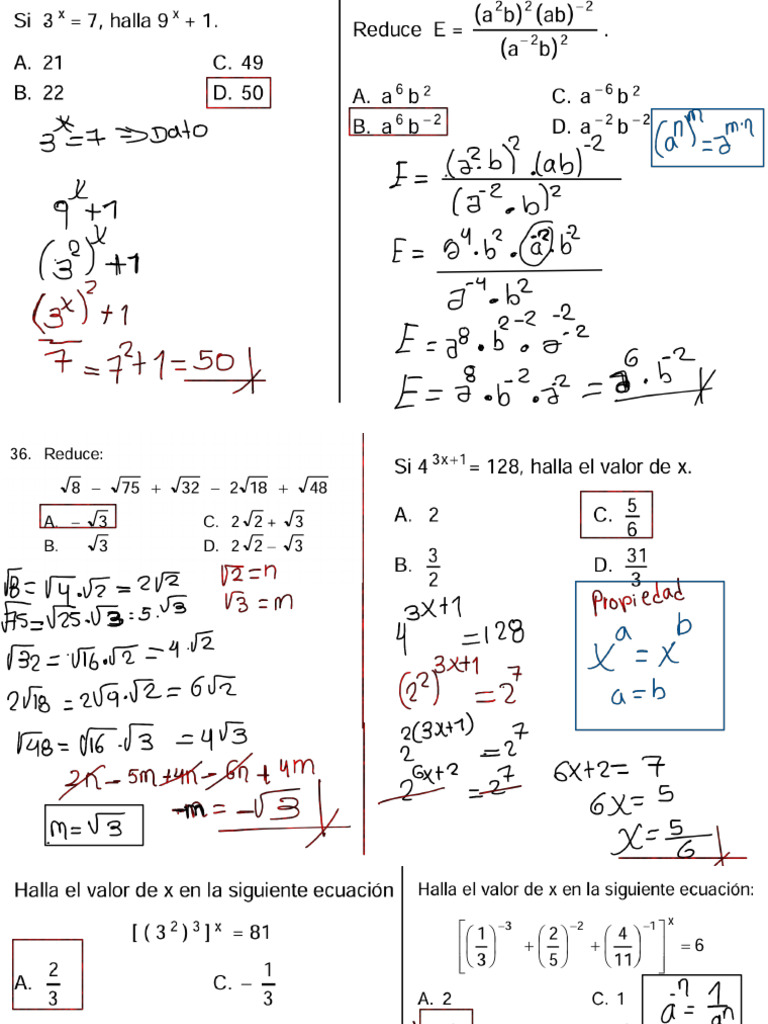 Si 3^x = 7, halla 9^x + 1.
A. 21 C. 49
B. 22 D. 50
3^x = 7 ⇒ Dato
9^x + 1
(3^2)^x + 1
(3^x)^2 + 1
7 = 7^2 + 1 = 50
Reduce E = (a^2b)^2 (ab)^-2 / (a^-2b)^2 .
A. a^6 b^2 C. a^-6 b^2
B. a^6 b^-2 D. a^-2 b^-2
(a^n)^m = a^m·n
E = (a^2·b)^2 . (ab)^-2 / (a^-2 · b)^2
E = a^4 · b^2 · a^-2 · b^-2 / a^-4 · b^2
E = a^8 · b^2-2 -2 · a^-2
E = a^8 · b^-2 · a^-2 = a^6 · b^-2
36. Reduce:
√8 − √75 + √32 − 2√18 + √48
A. − √3 C. 2√2 + √3
B. √3 D. 2√2 − √3
√8 = √4 · √2 = 2√2
√75 = √25 · √3 = 5 · √3
√32 = √16 · √2 = 4 · √2
2√18 = 2√9 · √2 = 6√2
√48 = √16 · √3 = 4√3
√2 = n
√3 = m
2n − 5m + 4n − 6n + 4m
−m = −√3
m = √3
Si 4^3x+1 = 128, halla el valor de x.
A. 2 C. 5/6
B. 3/2 D. 31/3
4^3x+1 = 128
(2^2)^3x+1 = 2^7
2^2(3x+1) = 2^7
2^6x+2 = 2^7
Propiedad
x^a = x^b
a = b
6x+2 = 7
6x = 5
x = 5/6
Halla el valor de x en la siguiente ecuación
[ ( 3^2 )^3 ]^x = 81
A. 2/3 C. − 1/3
Halla el valor de x en la siguiente ecuación:
[(1/3)^-3 + (2/5)^-2 + (4/11)^-1]^x = 6
A. 2 C. 1
a^-n = 1/a^n